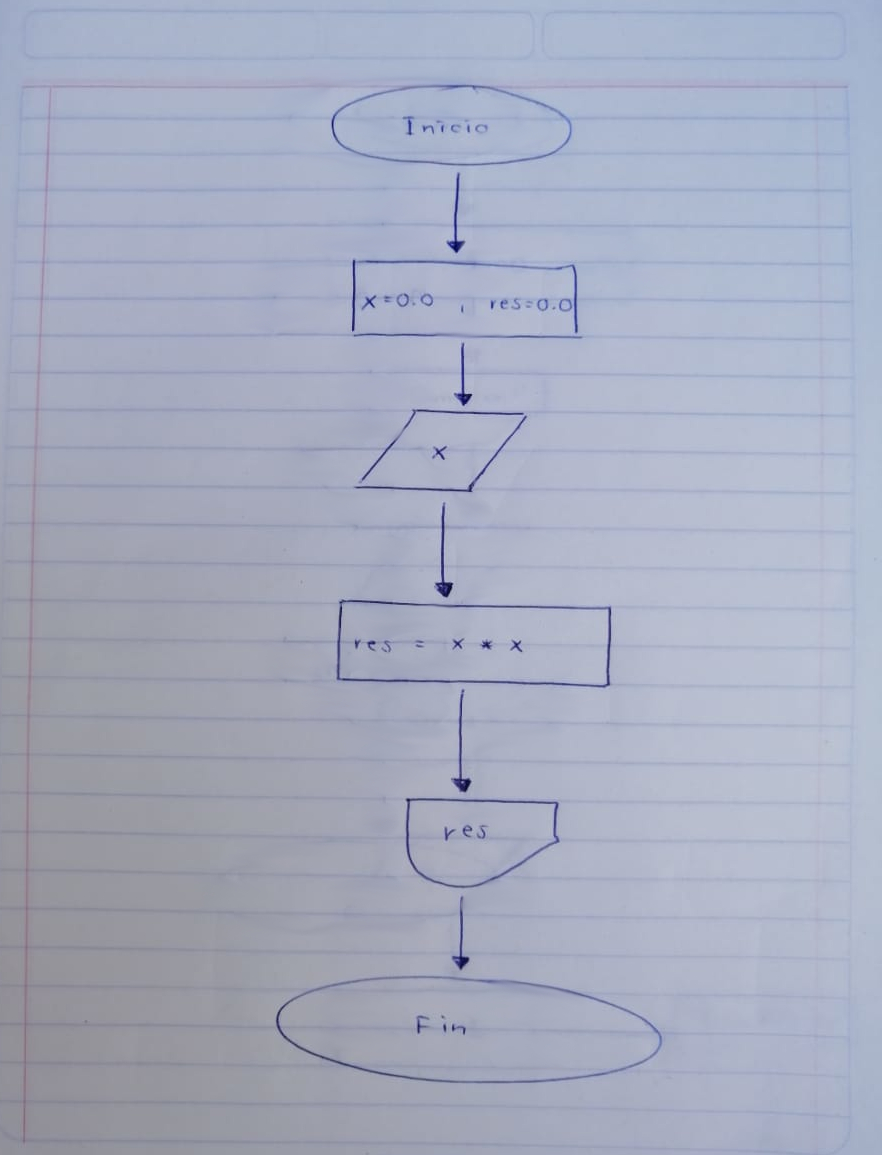 Inicio
x=0.0 , res=0.0
x
res = x * x
res
Fin